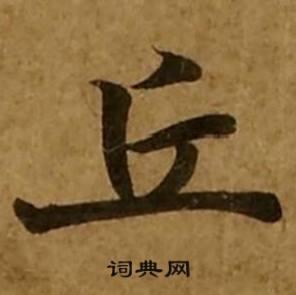 丘
词典网